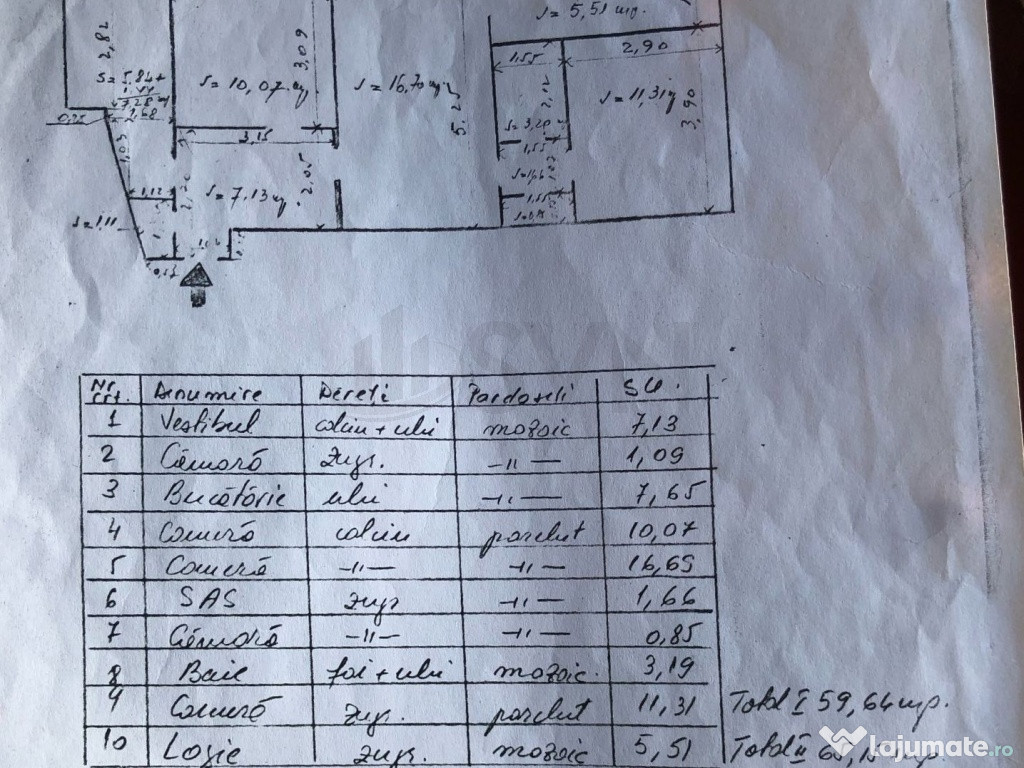 S= 5,51 mp.
2,82
3,09
1,55
2,90
S= 5.84+
1.44
7,28 m
1,68
S= 10,07 mp
S= 16,70 mp
5.25
2,12
S= 11,31 mp
3,90
S= 3,20
3,15
1,03
1,55
2,05
S= 1,66
1,12
S= 7.13 mp
1,55
S= 1,11
0,17
Nr. crt. Denumire Pereti Pardoseli SU.
1 Vestibul calciu + ulei mozaic 7,13
2 Cămară zugr. —ıı— 1,09
3 Bucătărie ulei —ıı— 7,65
4 Cameră calciu parchet 10,07
5 Cameră —ıı— —ıı— 16,69
6 SAS zugr —ıı— 1,66
7 Cămară —ıı— —ıı— 0,85
8 Baie fai + ulei mozaic. 3,19
9 Cameră zugr. parchet 11,31 Total I 59,64 mp.
10 Logie zugr. mozaic 5,51 Total II
lajumate.ro